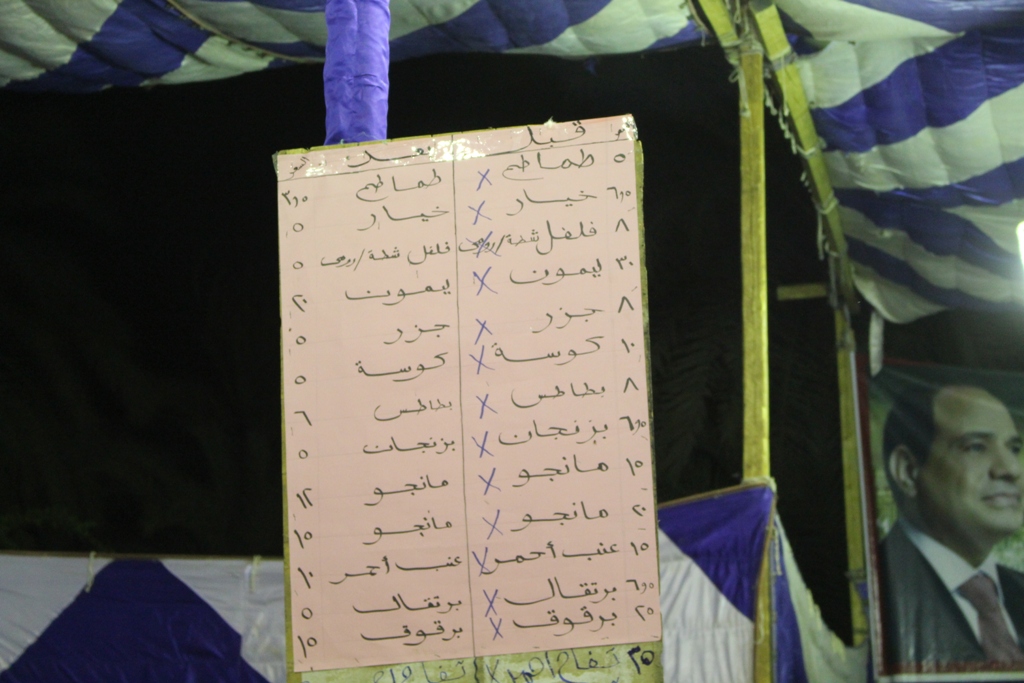 قبل بعد السعر
٥ طماطم X طماطم ٣,٥
٦,٥ خيار X خيار ٥
٨ فلفل شطة/رومى X فلفل شطة/رومى ٥
٣٠ ليمون X ليمون ٢٠
٨ جزر X جزر ٥
١٠ كوسة X كوسة ٥
٨ بطاطس X بطاطس ٦
٦,٥ بزنجان X بزنجان ٥
١٥ مانجو X مانجو ١٢
٢٠ مانجو X مانجو ١٥
١٥ عنب أحمر X عنب أحمر ١٠
٦,٥ برتقال X برتقال ٥
٢٥ برقوق X برقوق ١٥
٣٥ تفاح احمر X تفاح